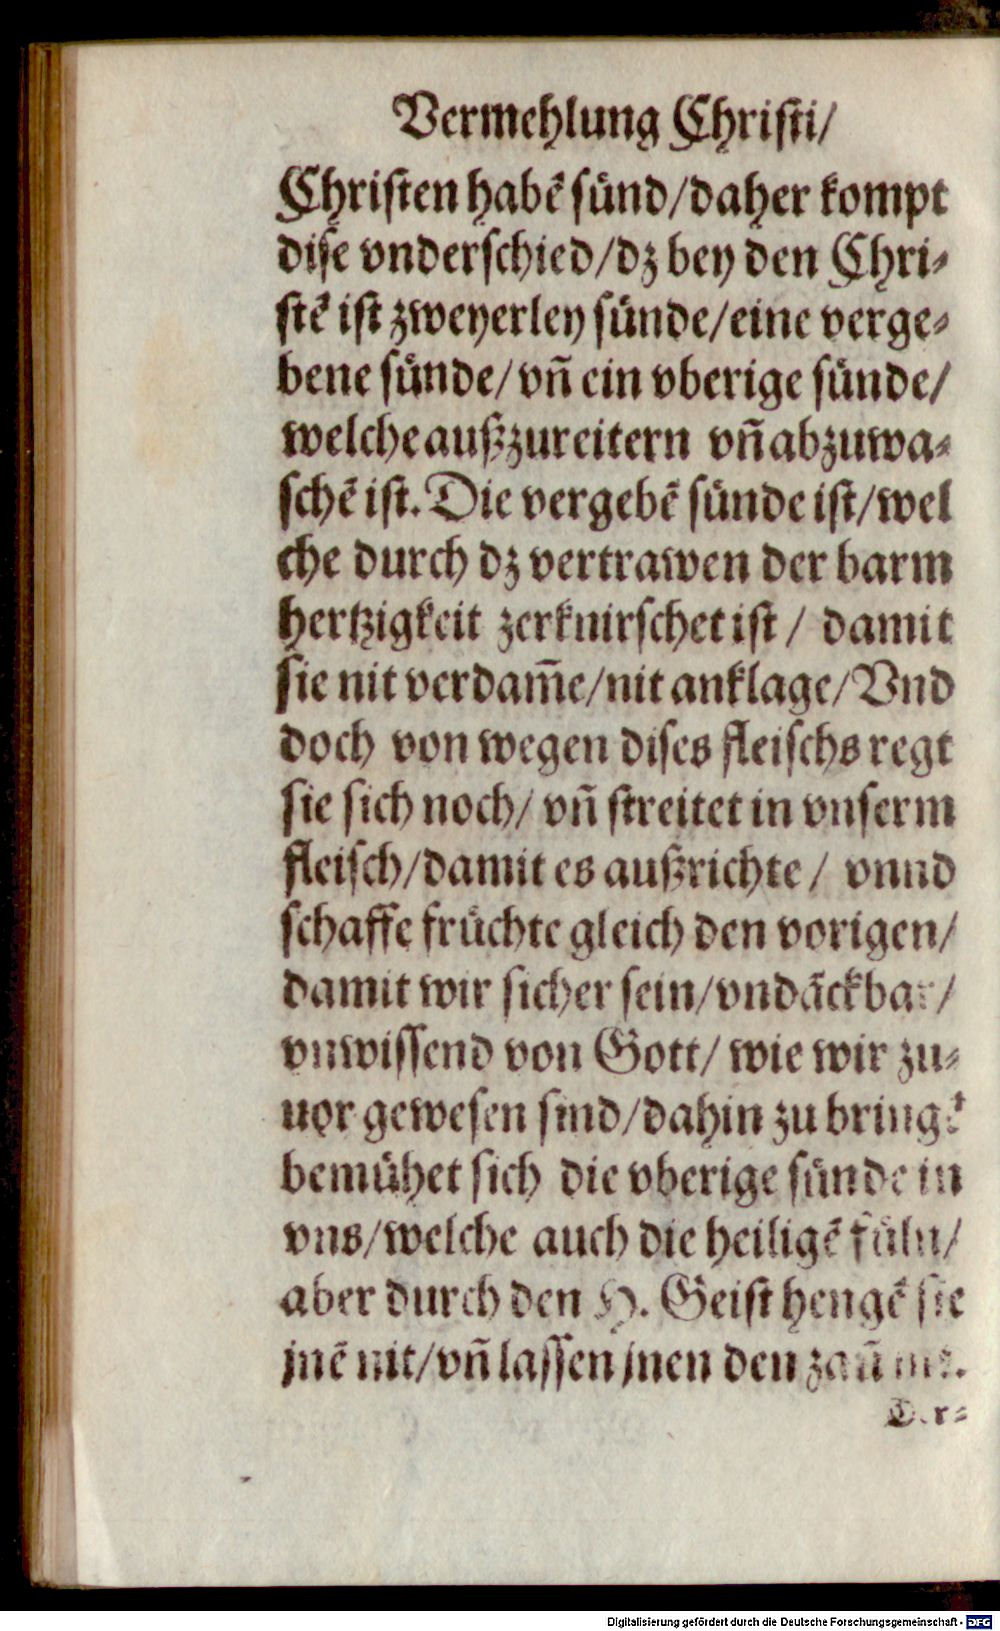 Vermehlung Christi/
Christen habẽ sünd/daher kompt
dise vnderschied/dz bey den Chri⸗
stẽ ist zweyerley sünde/eine verge⸗
bene sünde/vñ ein vberige sünde/
welche außzureitern vñ abzuwa⸗
schẽ ist. Die vergebẽ sünde ist/wel
che durch dz vertrawen der barm
hertzigkeit zerknirschet ist / damit
sie nit verdam̃e/nit anklage/Vnd
doch von wegen dises fleischs regt
sie sich noch/ vñ streitet in vnserm
fleisch/damit es außrichte / vnnd
schaffe früchte gleich den vorigen/
damit wir sicher sein/vndãckbar/
vnwissend von Gott/ wie wir zu⸗
uor gewesen sind/dahin zu bringẽ
bemühet sich die vberige sünde in
vns/welche auch die heiligẽ füln/
aber durch den H. Geist hengẽ sie
jnẽ nit/vñ lassen jnen den zaũ nit.
Der⸗
Digitalisierung gefördert durch die Deutsche Forschungsgemeinschaft - DFG